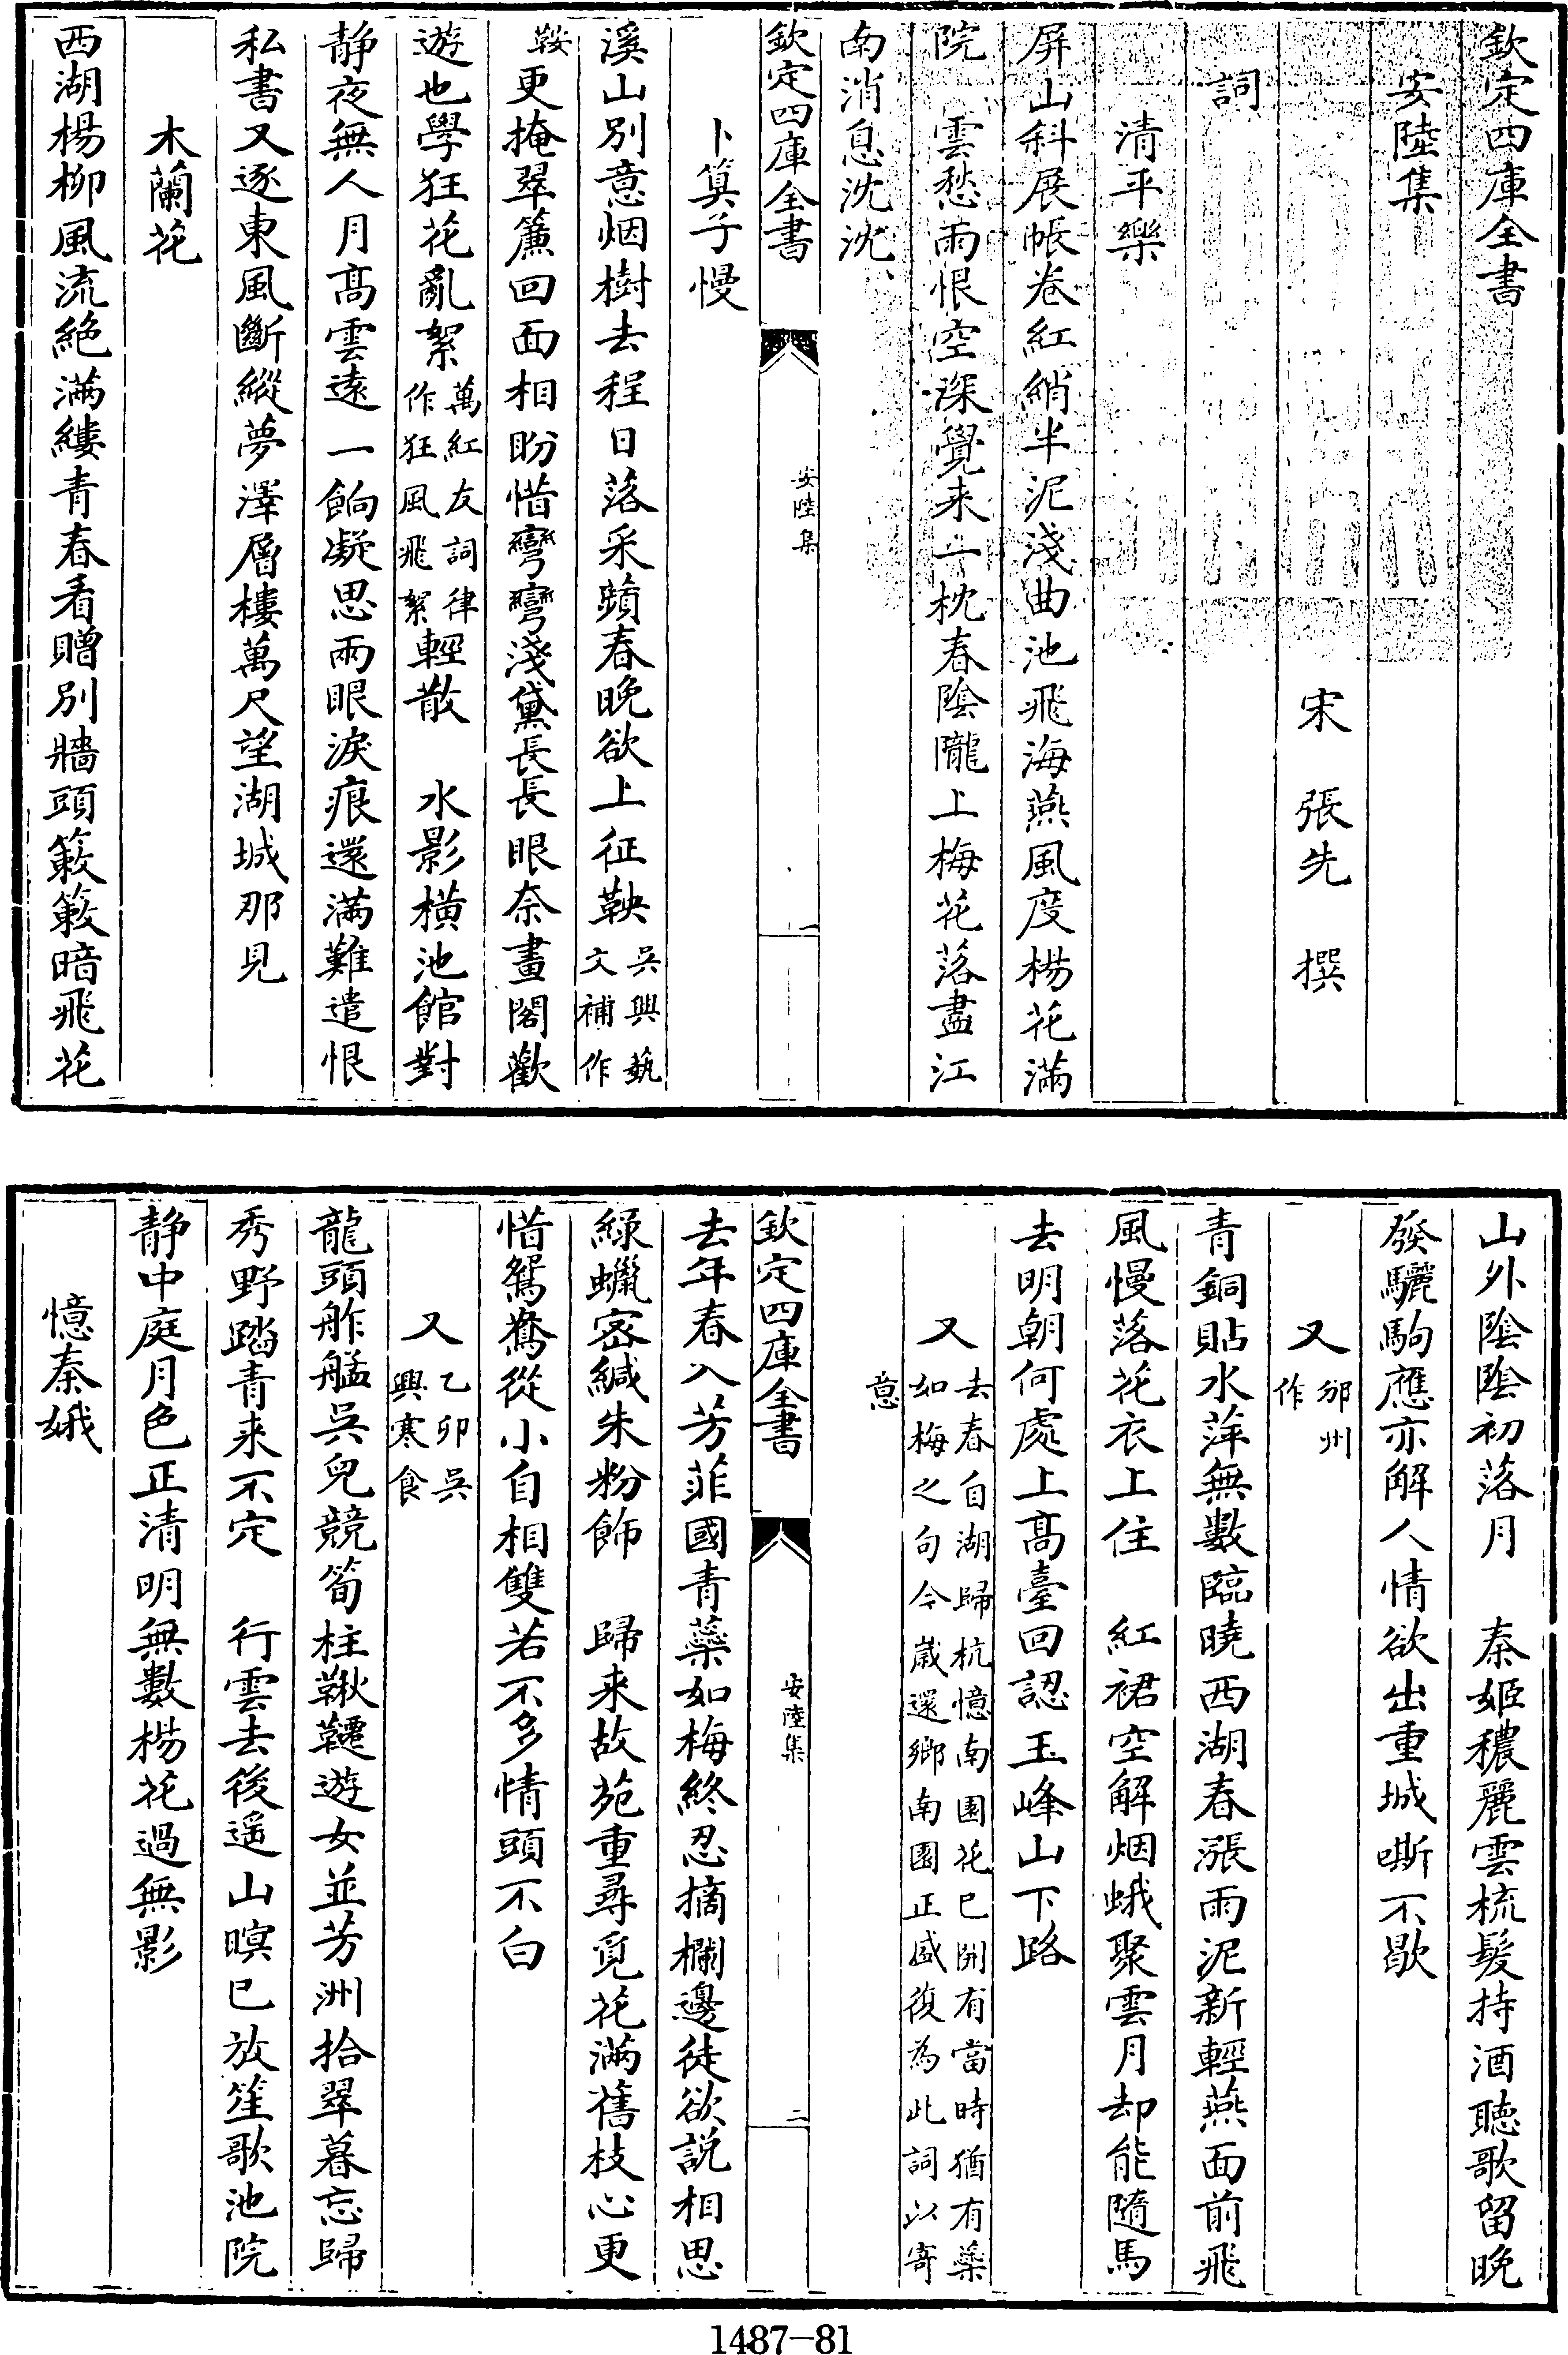 欽定四庫全書
安陸集
宋　張先　撰
詞
清平樂
屏山斜展帳卷紅綃半泥淺曲池飛海燕風度楊花滿
院　雲愁雨恨空深覺来一枕春陰隴上梅花落盡江
南消息沈沈
欽定四庫全書
安陸集
一
卜算子慢
溪山別意烟樹去程日落采蘋春晚欲上征鞅吳興藝文補作
鞍更掩翠簾回面相盼惜彎彎淺黛長長眼奈畫閣歡
遊也學狂花亂絮萬紅友詞律作狂風飛絮輕散　水影橫池館對
静夜無人月髙雲遠一餉凝思兩眼淚痕還滿難遣恨
私書又逐東風斷縱夢澤層樓萬尺望湖城那見
木蘭花
西湖楊柳風流絶滿縷青春看贈別牆頭簌簌暗飛花
山外陰陰初落月　秦姬穠麗雲梳髮持酒聽歌留晚
發驪駒應亦解人情欲出重城嘶不歇
又邠州作
青銅貼水萍無數臨曉西湖春漲雨泥新輕燕面前飛
風慢落花衣上住　紅裙空解烟蛾聚雲月却能隨馬
去明朝何處上髙臺回認玉峰山下路
又去春自湖歸杭憶南園花已開有當時猶有蘂如梅之句今歲還鄉南園正盛復為此詞以寄意
欽定四庫全書
安陸集
二
去年春入芳菲國青蘂如梅終忍摘欄邊徒欲説相思
綠蠟宻緘朱粉飾　歸来故苑重尋覓花滿舊枝心更
惜鴛鴦從小自相雙若不多情頭不白
又乙卯吳興寒食
龍頭舴艋吳兒競筍柱鞦韆遊女並芳洲拾翠暮忘歸
秀野踏青来不定　行雲去後遥山暝已放笙歌池院
静中庭月色正清明無數楊花過無影
憶秦娥
1487-81